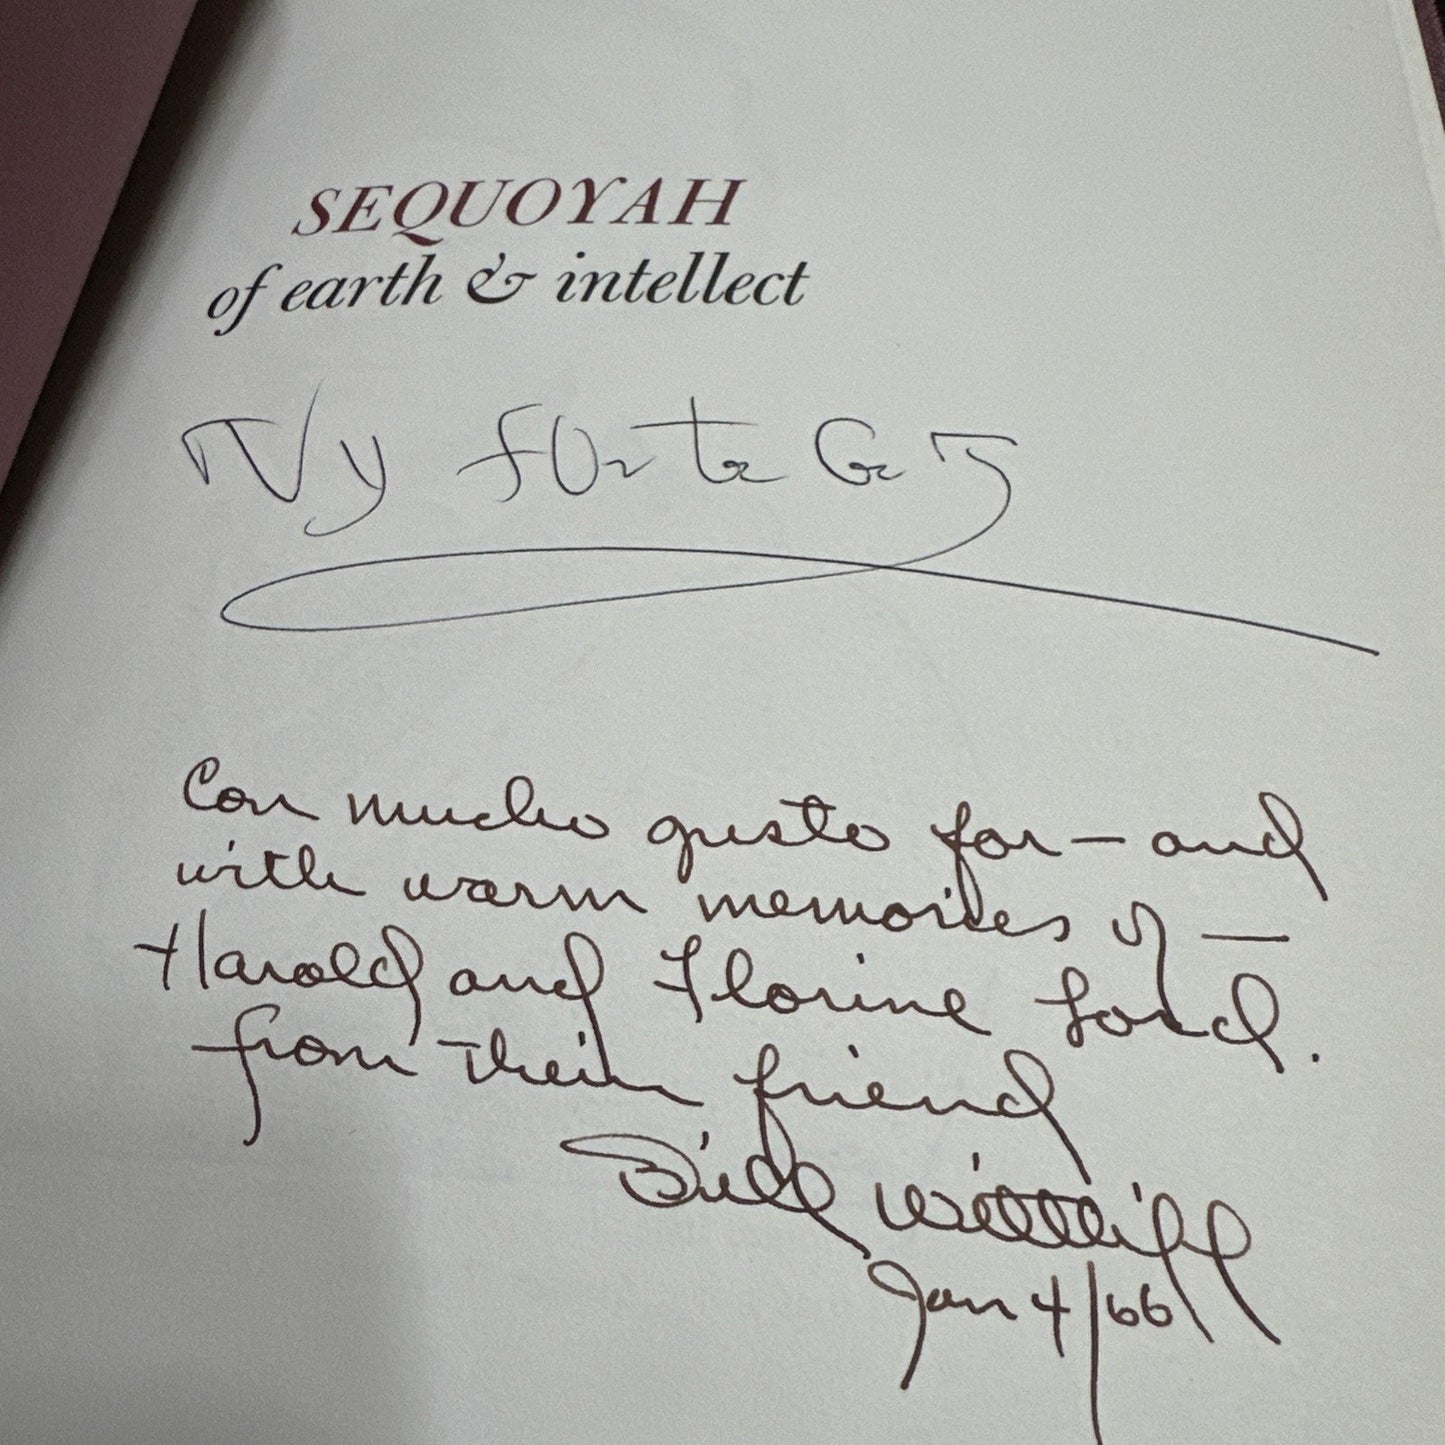 SEQUOYAH
of earth & intellect
Con mucho gusto for — and
with warm memories of —
Harold and Florine Ford.
from their friend
Bill Wittliff
Jan 4/66